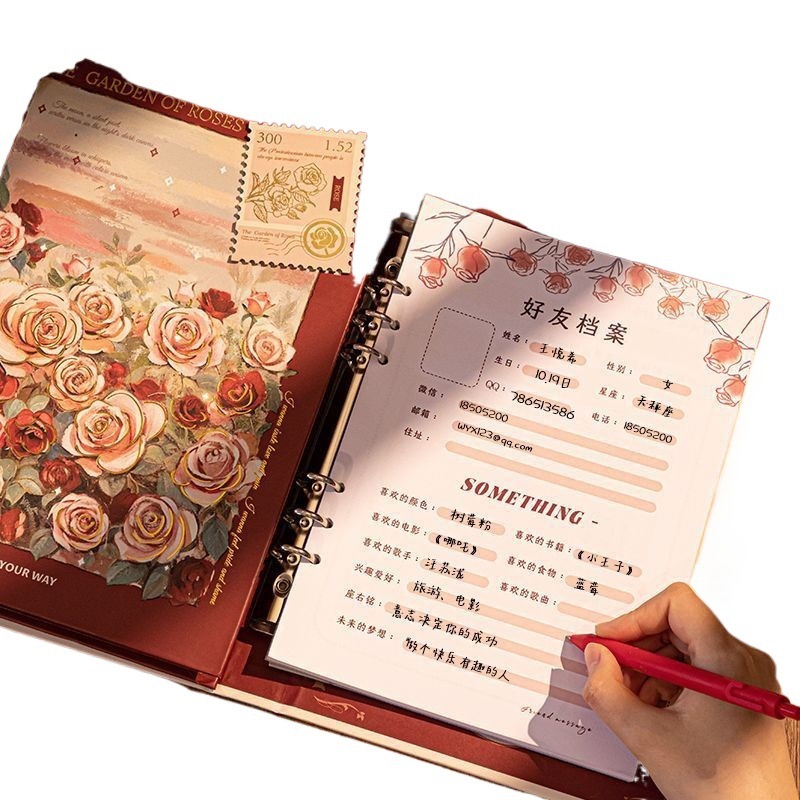 GARDEN OF ROSES
The moon, a silent poet,
Flowers bloom in whispers,
300 1.52
ROSE
The Garden of Roses
YOUR WAY
好友档案
姓名： 王悦希 性别： 女
生日： 10.19日 星座： 天秤座
QQ： 786513586 电话： 18505200
微信： 18505200
邮箱： wyx123@qq.com
住址：
SOMETHING -
喜欢的颜色： 树莓粉 喜欢的书籍： 《小王子》
喜欢的电影： 《哪吒》 喜欢的食物： 蓝莓
喜欢的歌手： 汪苏泷 喜欢的歌曲：
兴趣爱好： 旅游、电影
座右铭： 意志决定你的成功
未来的梦想： 做个快乐有趣的人
Friend message